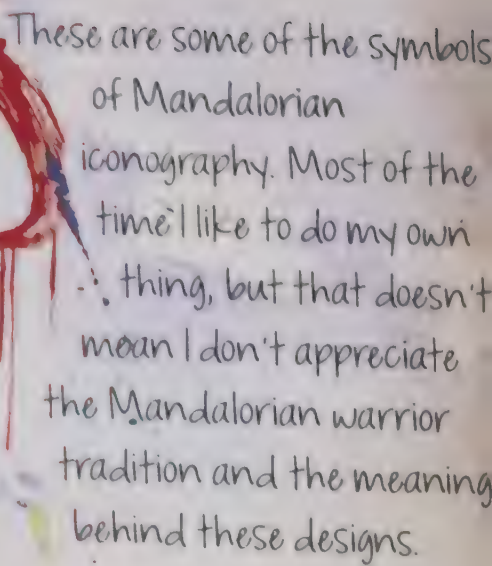 These are some of the symbols
of Mandalorian
iconography. Most of the
time I like to do my own
thing, but that doesn't
mean I don't appreciate
the Mandalorian warrior
tradition and the meaning
behind these designs.